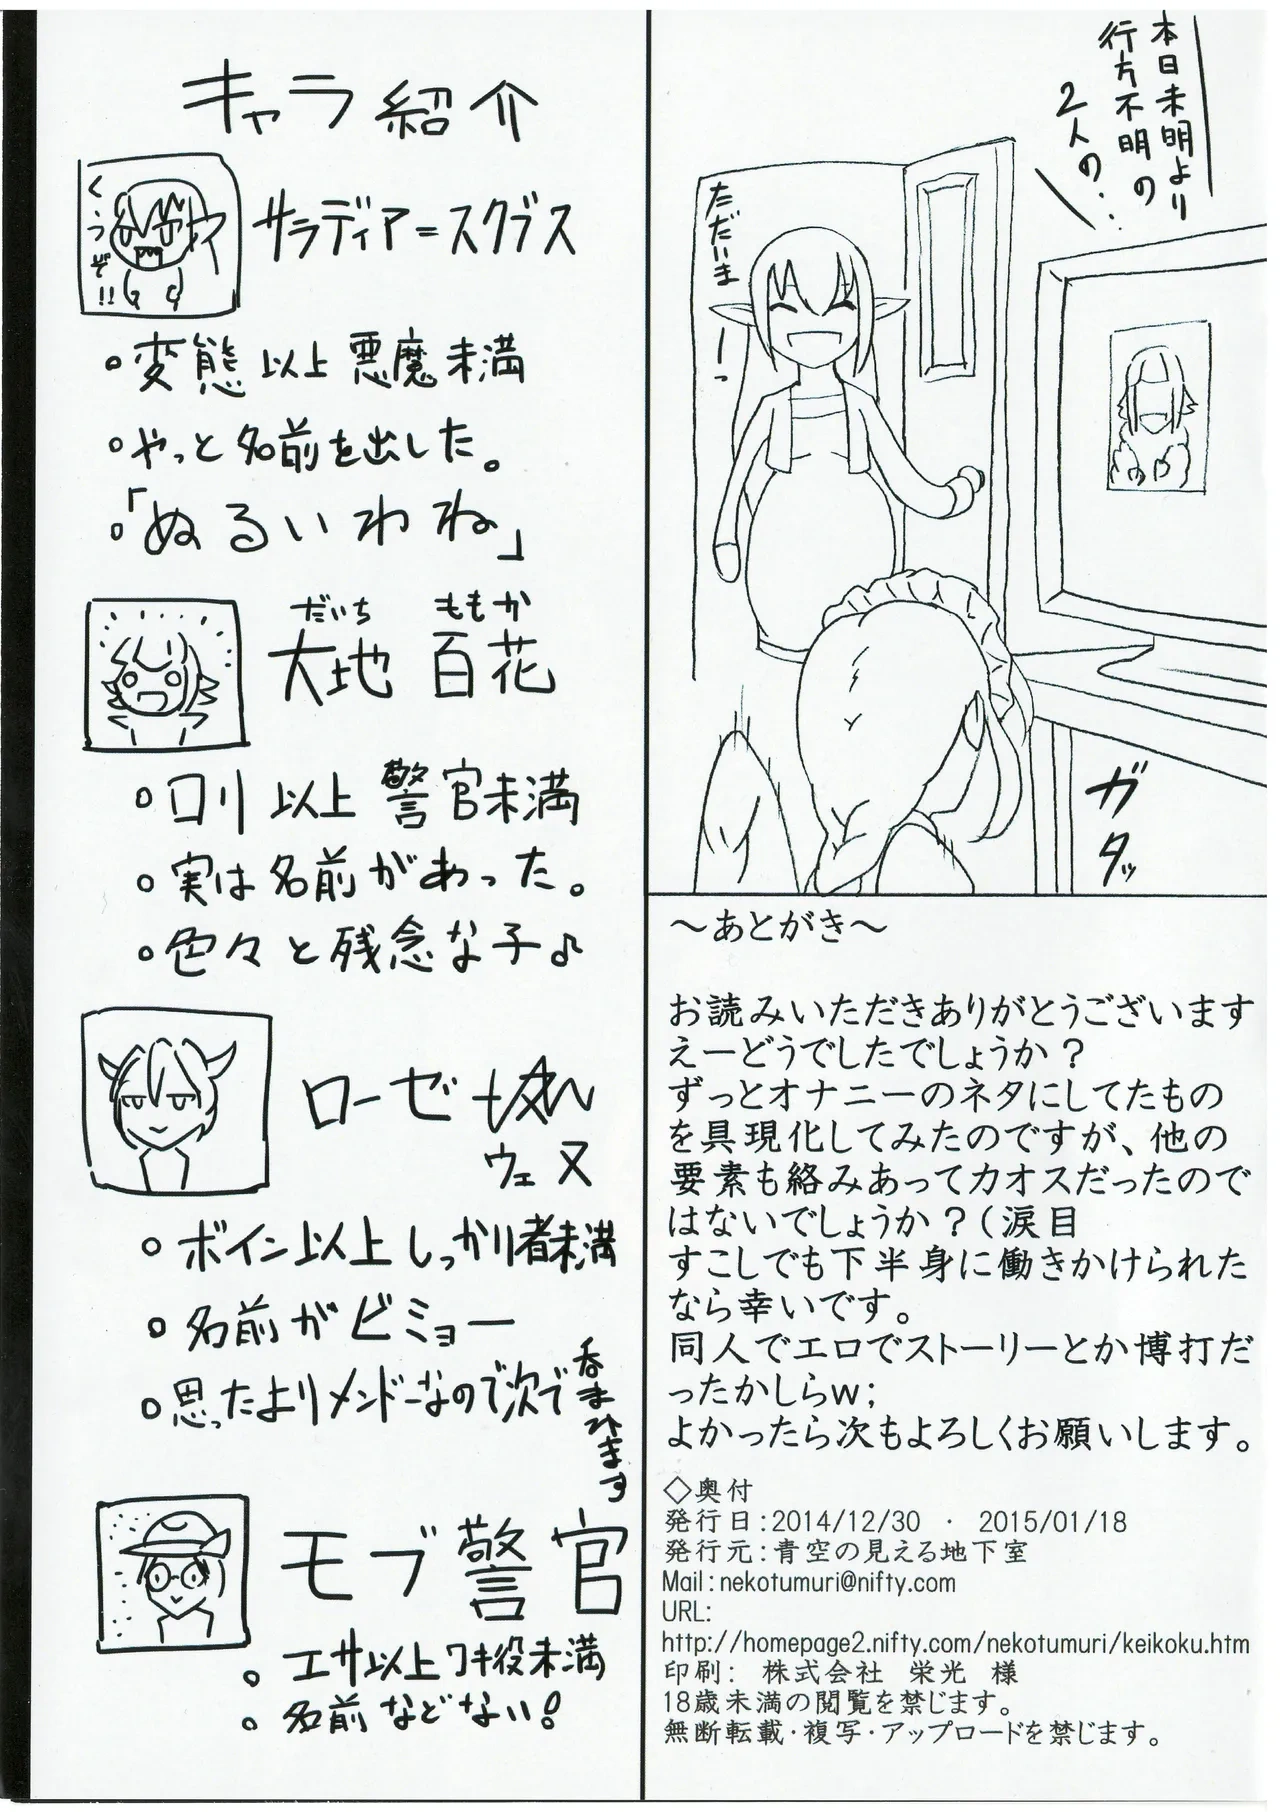 本日未明より
行方不明の
2人の‥
ただいま
ーっ
ガタッ
キャラ紹介
くうぞ!!
サラディア=スクブス
○変態以上悪魔未満
○やっと名前を出した。
○「ぬるいわね」
だいち ももか
大地 百花
○ロリ以上警官未満
○実は名前があった。
○色々と残念な子♪
ローゼ
ウェヌ
○ボイン以上しっかり者未満
○名前がビミョー
○思ったよりメンドーなので次で
呑まれます
モブ警官
○エサ以上ワキ役未満
○名前などない!
～あとがき～
お読みいただきありがとうございます
えーどうでしたでしょうか？
ずっとオナニーのネタにしてたもの
を具現化してみたのですが、他の
要素も絡みあってカオスだったので
はないでしょうか？(涙目
すこしでも下半身に働きかけられた
なら幸いです。
同人でエロでストーリーとか博打だ
ったかしらｗ;
よかったら次もよろしくお願いします。
◇奥付
発行日:2014/12/30 ・ 2015/01/18
発行元:青空の見える地下室
Mail:nekotumuri@nifty.com
URL:
http://homepage2.nifty.com/nekotumuri/keikoku.htm
印刷: 株式会社 栄光 様
18歳未満の閲覧を禁じます。
無断転載・複写・アップロードを禁じます。